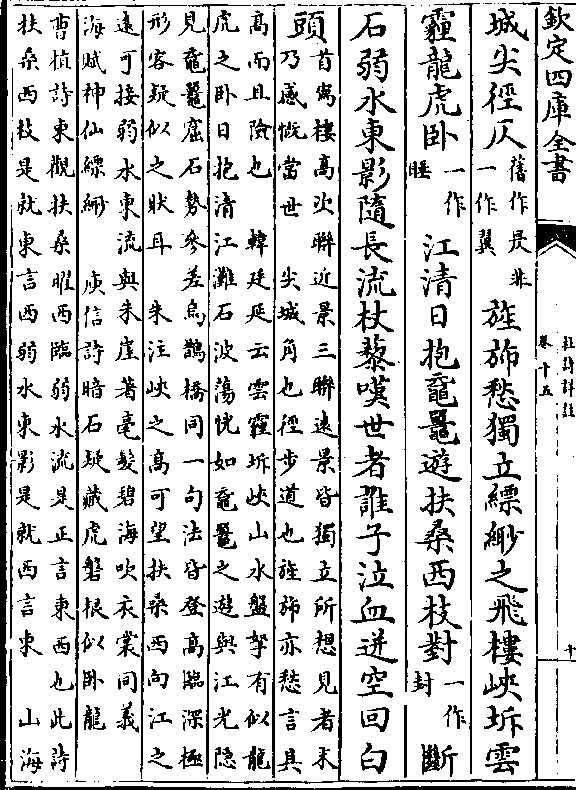 欽定四庫全書
杜詩詳註
卷十五
十
城尖徑仄舊作昃非一作翼旌斾愁獨立縹緲之飛樓峽坼雲
霾龍虎卧一作睡江清日抱黿鼉遊扶桑西枝對一作封斷
石弱水東影隨長流杖藜嘆世者誰子泣血迸空回白
頭首寫樓高次聯近景三聯遠景皆獨立所想見者末
乃感慨當世 尖城角也徑步道也旌斾亦愁言其
高而且險也 韓廷延云雲霾坼峽山水盤拏有似龍
虎之卧日抱清江灘石波蕩恍如黿鼉之遊與江光隱
見黿鼉窟石勢參差烏鵲橋同一句法皆登高臨深極
形容疑似之狀耳 朱注峽之高可望扶桑西向江之
遠可接弱水東流與朱崖著毫髮碧海吹衣裳同義
海賦神仙縹緲 庾信詩暗石疑藏虎盤根似卧龍
曹植詩東觀扶桑曜西臨弱水流是正言東西也此詩
扶桑西枝是就東言西弱水東影是就西言東 山海